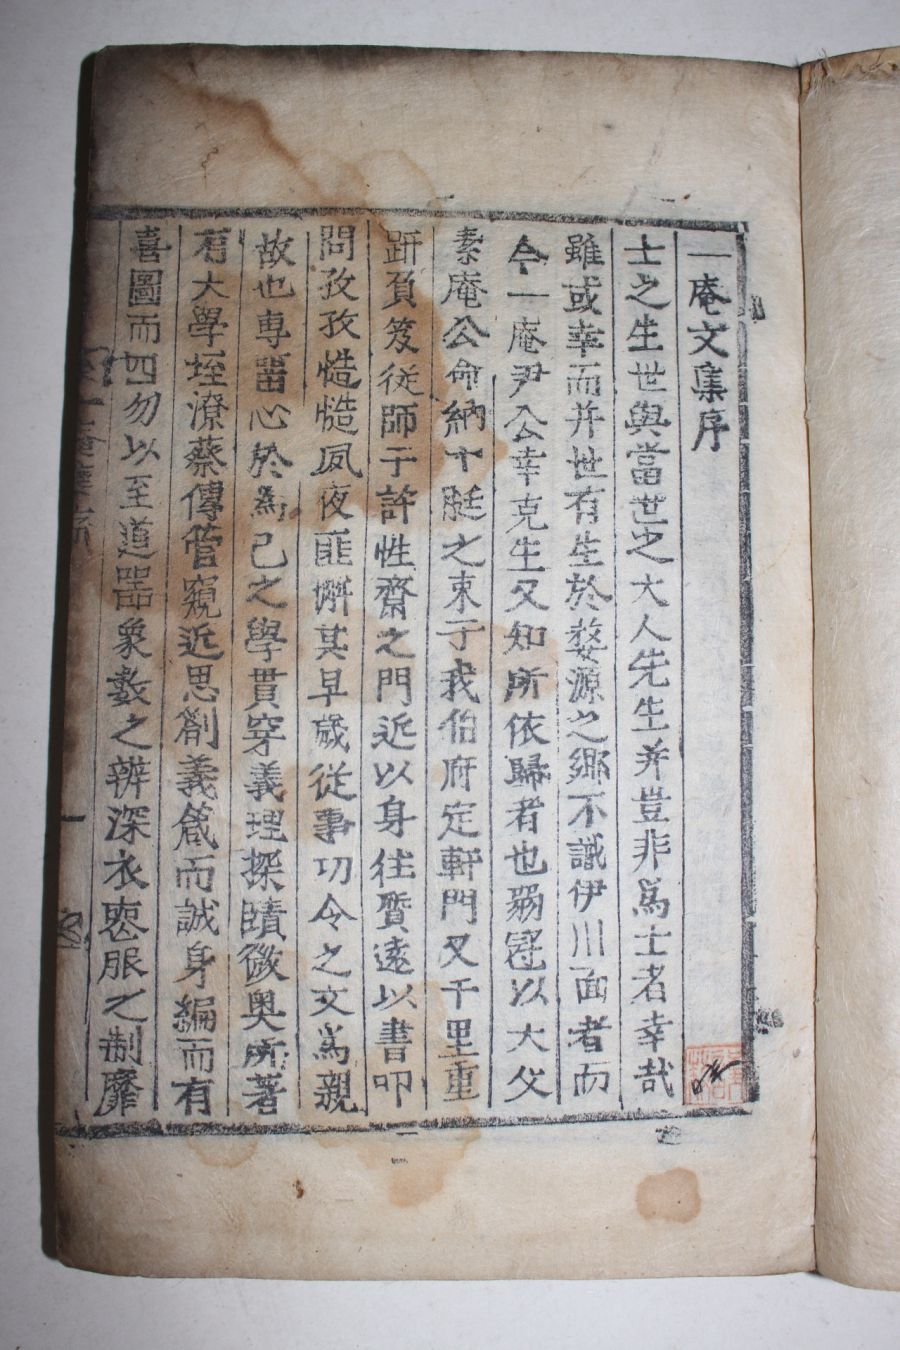 一庵文集序
士之生世與當世之大人先生并豈非爲士者幸哉
雖或幸而并世有生於婺源之鄕不識伊川面者而
今一庵尹公幸克生又知所依歸者也弱冠以大父
素庵公命納十脡之束于我伯府定軒門又千里重
趼負笈從師于許性齋之門近以身往質遠以書叩
問孜孜慥慥夙夜匪懈其早歲從事功令之文爲親
故也専留心於爲己之學貫穿義理探賾微奧所著
有大學垤潦蔡傳管窺近思劄義箴而誠身編而有
喜圖而四勿以至道器象數之辨深衣喪服之制靡